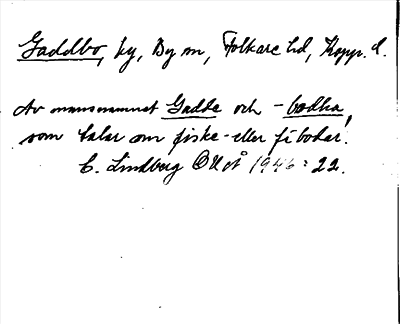 Gaddbo, by, By sn, Folkare hd, Kopp. l.
Av mansnamnet Gadde och -bodha,
som talar om fiske- eller fäbodar.
C. Lindberg OUÅ 1946: 22.